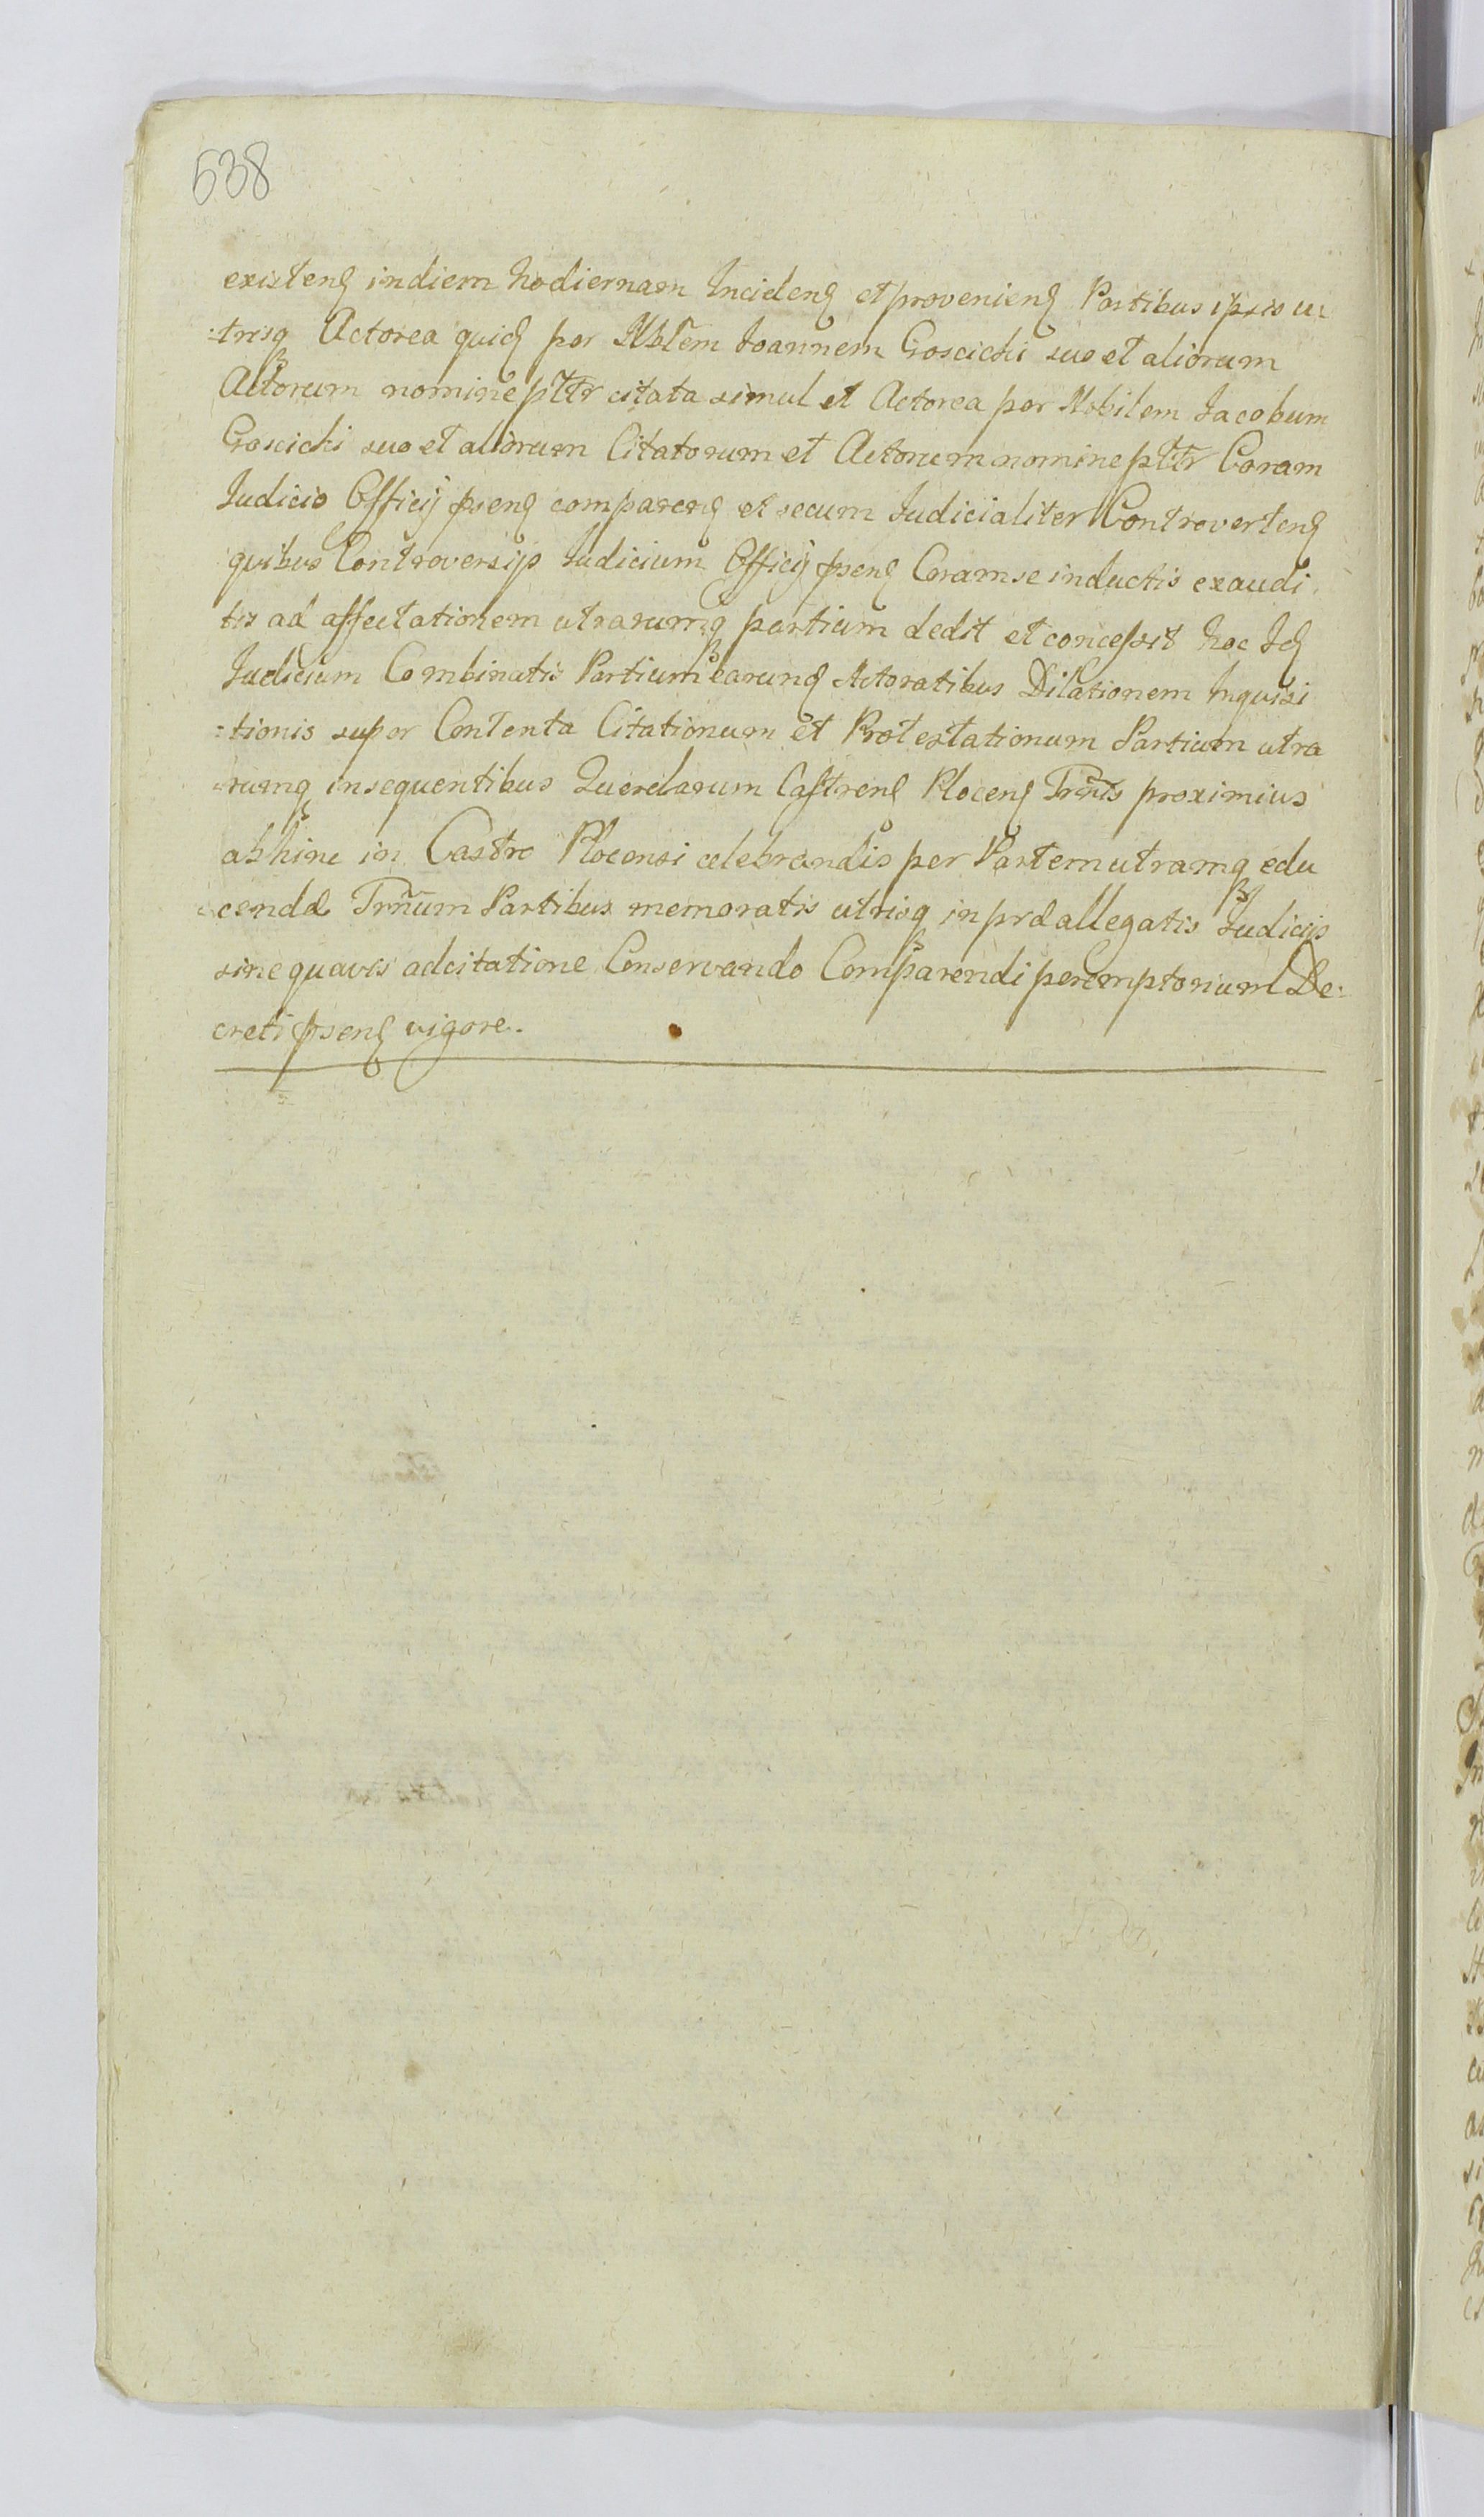 638
existenȩ indiem hodiernam Incidenȩ et provenienȩ Partibus ipsis u:
:trisq Actorea quidȩ per Nblem Joannem Goscicki suo et aliorum
Actorum nomine pttr citata simul et Actorea per Nobilem Jacobum
Goscicki suo et aliorum Citatorum et Actorum nomine pttr Coram
Judicio Officij psenȩ comparenȩ et secum Judicialiter Controvertenȩ
quibus Controversijs Judicium Officij psenȩ Coram se inductis exaudi
tis ad affectationem utrarumq partium dedit et concessit hoc Idȩ
Judicium Combinatis Partium earunȩ Actoratibus Dilationem Inquisi
:tionis super Contenta Citationum et Protestationum Partium utra
rumq insequentibus Querelarum Castrenȩ Plocenȩ Trnis proximius
abhinc in Castro Plocensi celebrandis per Partem utramq edu
cendæ Trñum Partibus memoratis utrisq in præallegatis Judicijs
sine quavis adcitatione Conservando Comparendi peremptorium De:
creti psenȩ vigore.